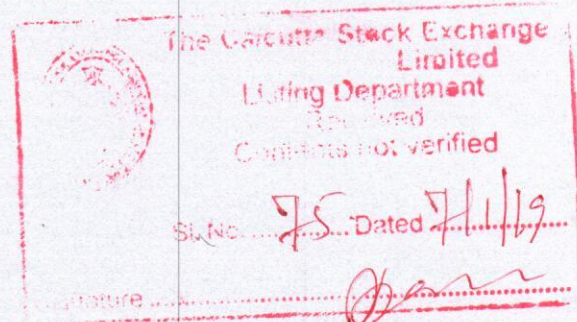 The Calcutta Stock Exchange
Limited
Listing Department
Received
Contents not verified
Sl. No. 75 Dated 7/1/19
Signature